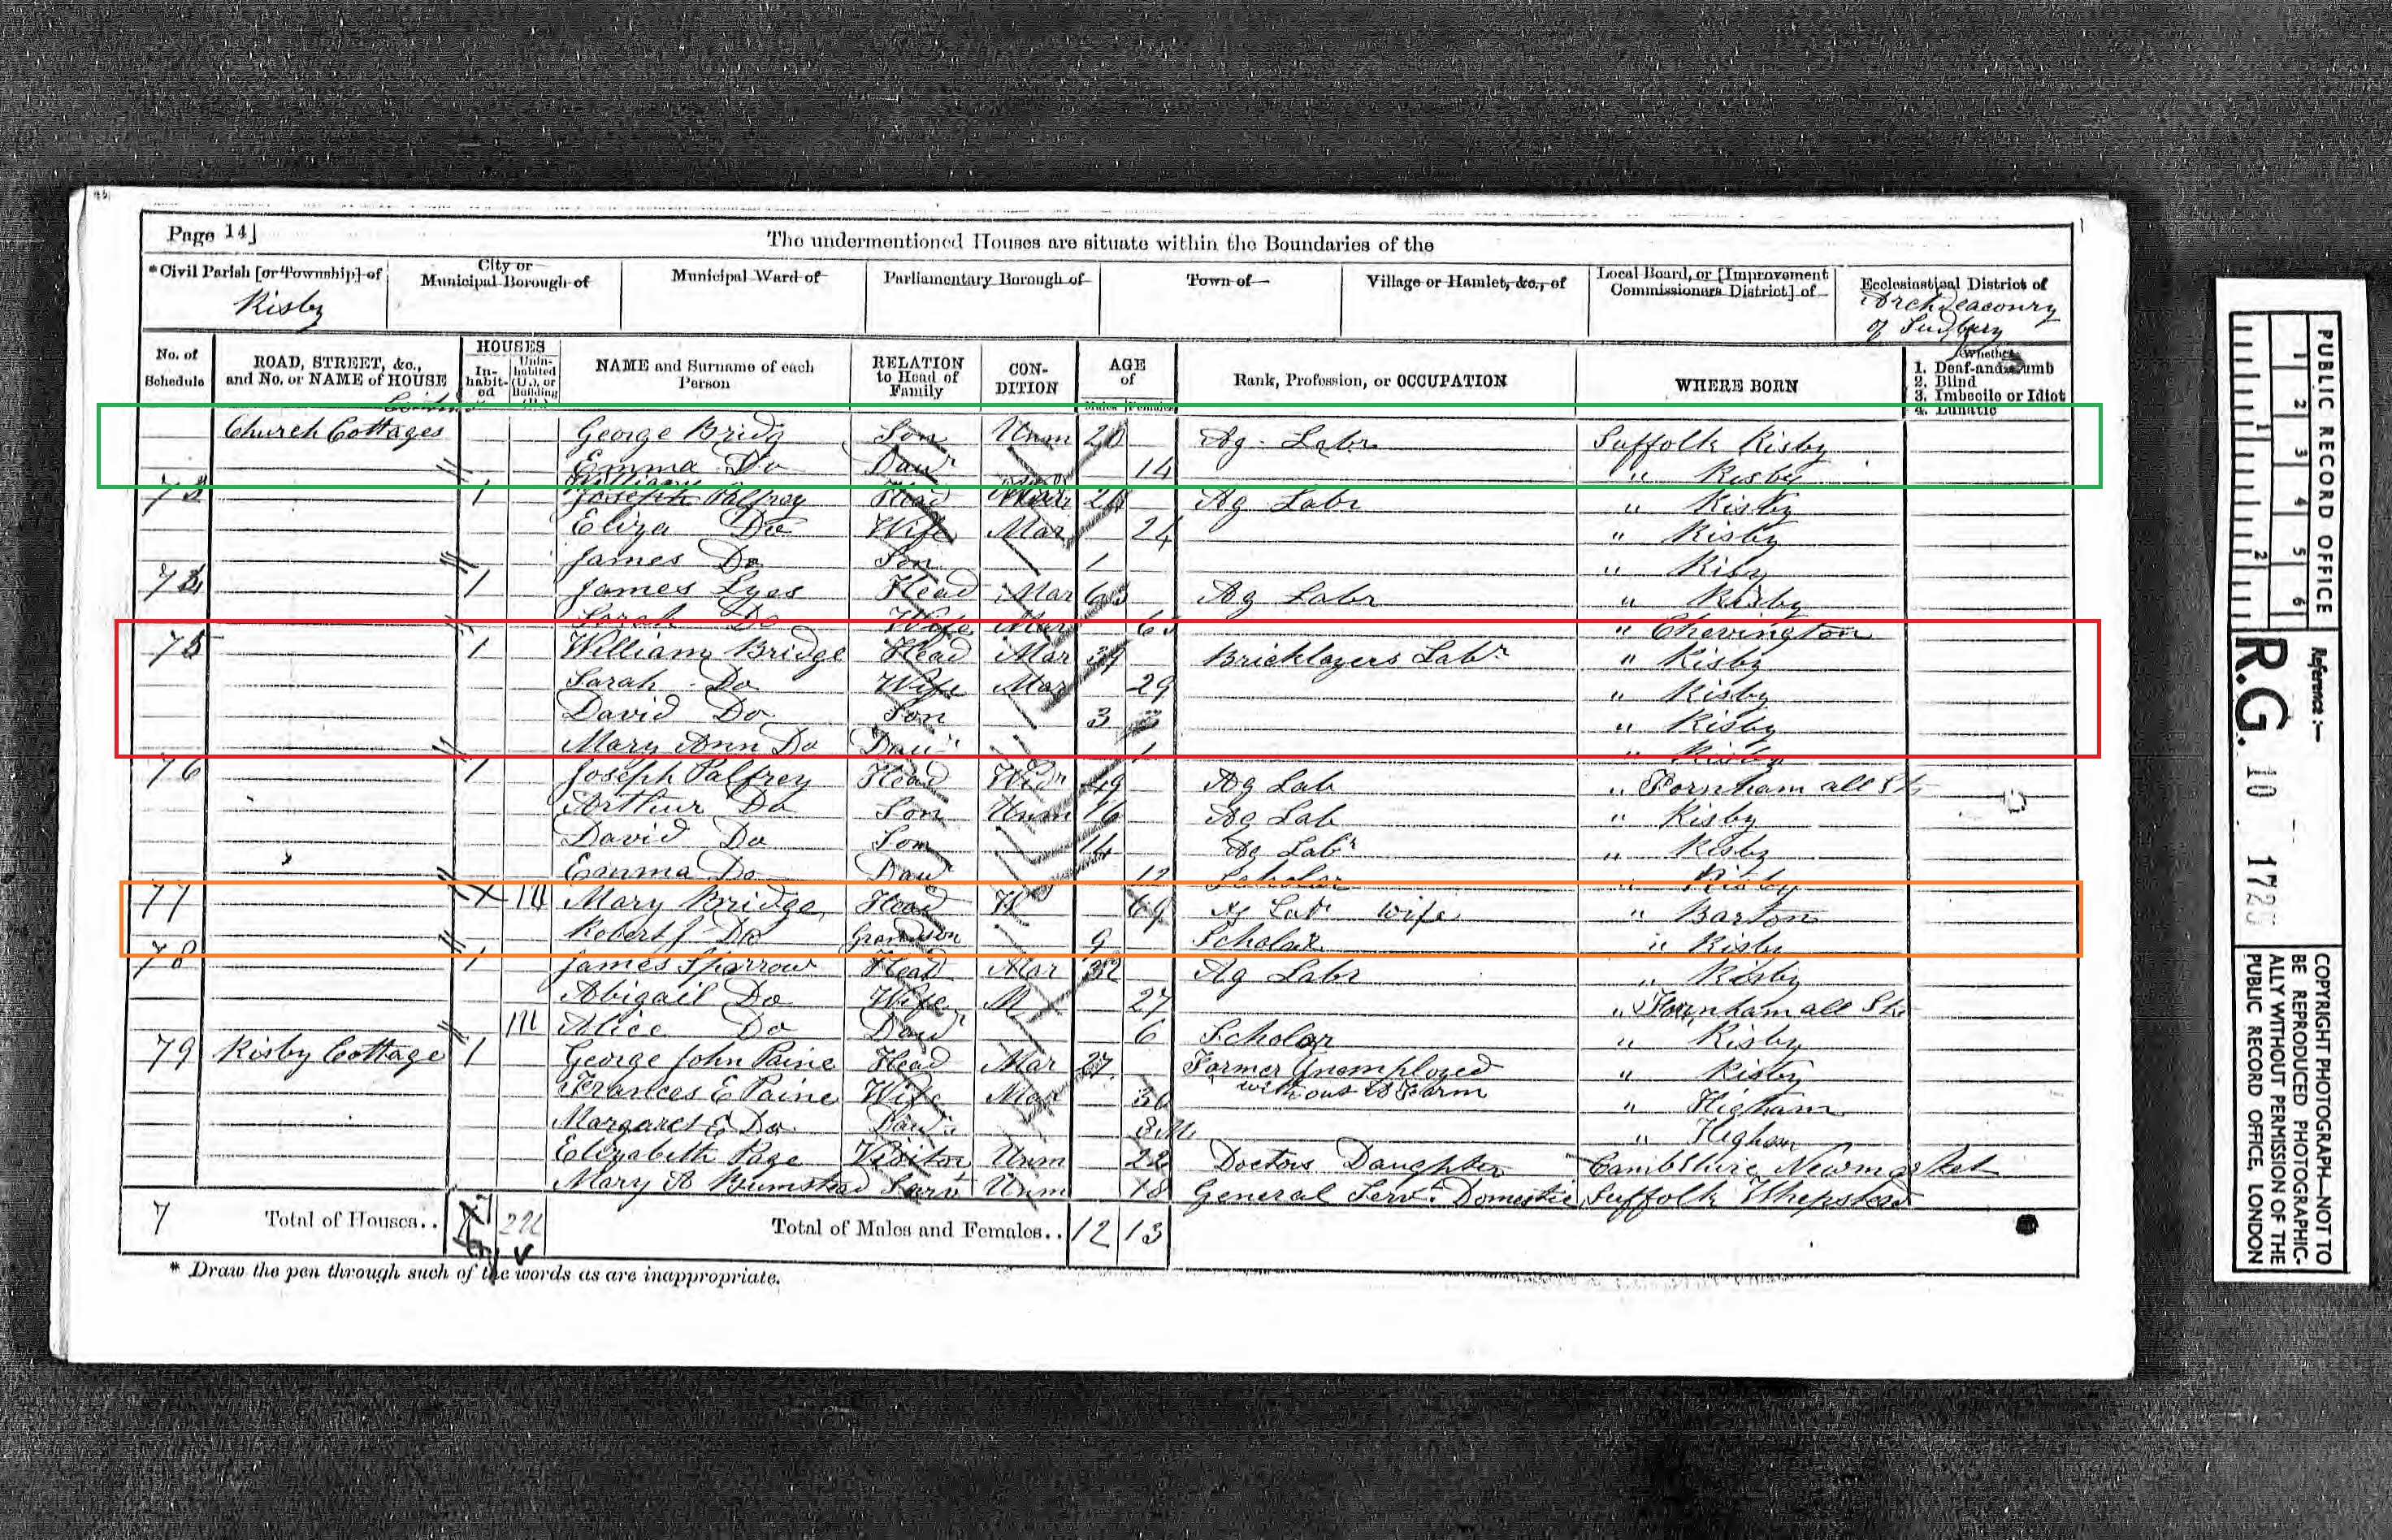 Page 14]
The undermentioned Houses are situate within the Boundaries of the
*Civil Parish [or Township] of
City or Municipal Borough of
Municipal Ward of
Parliamentary Borough of
Town of
Village or Hamlet, &c., of
Local Board, or [Improvement Commissioners District] of
Ecclesiastical District of
Risby
Archdeaconry of Sudbury
No. of Schedule
ROAD, STREET, &c., and No. or NAME of HOUSE
HOUSES
In-habit-ed
Unin-habited (U.), or Building (B.)
NAME and Surname of each Person
RELATION to Head of Family
CON-DITION
AGE of
Males Females
Rank, Profession, or OCCUPATION
WHERE BORN
Whether
1. Deaf-and-Dumb
2. Blind
3. Imbecile or Idiot
4. Lunatic
Church Cottages George Bridg Son Unm 20 Ag. Labr Suffolk Risby
Emma Do Daur 14 " Risby
73 1 William Joseph Palfrey Head Mar Ag Labr " Risby
Eliza Do Wife Mar 24 " Risby
James Do Son 1 " Risy
74 1 James Lyes Head Mar 63 Ag Labr " Risby
Sarah Do Wife Mar " Chevington
75 1 William Bridge Head Mar 39 Bricklayers Labr " Risby
Sarah Do Wife Mar 29 " Risby
David Do Son 3 " Risby
Mary Ann Do Daur 1 " Risby
76 1 Joseph Palfrey Head Widr 49 Ag Lab " Fornham all Sts
Arthur Do Son Unm 16 Ag Lab " Risby
David Do Son 14 Ag Labr " Risby
Emma Do Daur 12 Scholar " Risby
77 Mary Bridge Head W 69 Ag Labr wife " Barton
Robert J Do Grandson 9 Scholar " Risby
78 1 James Sparrow Head Mar 32 Ag Labr " Risby
Abigail Do Wife M 27 " Fornham all Sts
Alice Do Daur 6 Scholar " Risby
79 Risby Cottage 1 George John Paine Head Mar 27 Farmer Unemployed " Risby
Frances E Paine Wife Mar 30 without a Farm " Higham
Margaret E Do Daur 8M " Higham
Elizabeth Page Visitor Unm 22 Doctors Daughter Cambshire Newmarket
Mary A Bumstead Serv Unm 18 General Servt Domestic Suffolk Whepstead
7 Total of Houses.. Total of Males and Females.. 12 13
* Draw the pen through such of the words as are inappropriate.
PUBLIC RECORD OFFICE
1 2 3 4 5 6
1 2
Reference :—
R.G. 10 / 1725
COPYRIGHT PHOTOGRAPH—NOT TO
BE REPRODUCED PHOTOGRAPHIC-
ALLY WITHOUT PERMISSION OF THE
PUBLIC RECORD OFFICE, LONDON